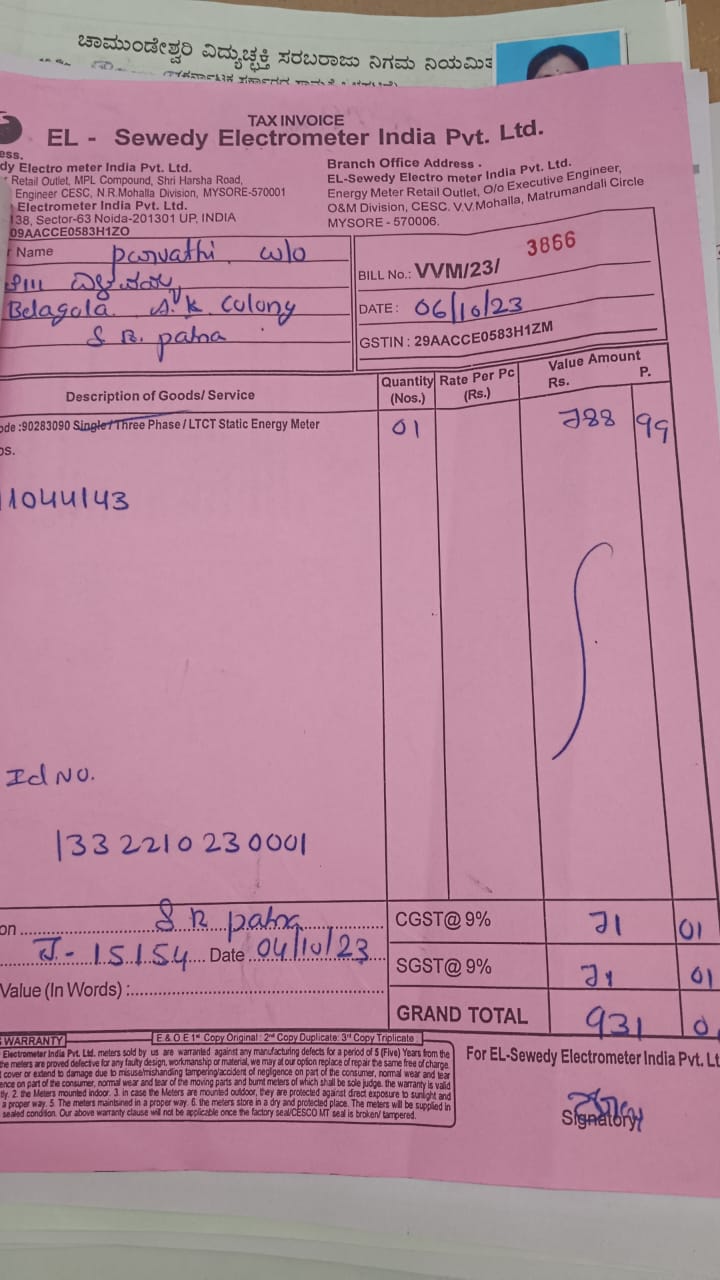 ಚಾಮುಂಡೇಶ್ವರಿ ವಿದ್ಯುಚ್ಛಕ್ತಿ ಸರಬರಾಜು ನಿಗಮ ನಿಯಮಿತ
TAX INVOICE
EL - Sewedy Electrometer India Pvt. Ltd.
ess.
dy Electro meter India Pvt. Ltd.
Retail Outlet, MPL Compound, Shri Harsha Road,
Engineer CESC, N.R.Mohalla Division, MYSORE-570001
Electrometer India Pvt. Ltd.
138, Sector-63 Noida-201301 UP, INDIA
09AACCE0583H1ZO
Branch Office Address .
EL-Sewedy Electro meter India Pvt. Ltd.
Energy Meter Retail Outlet, O/o Executive Engineer,
O&M Division, CESC. V.V.Mohalla, Matrumandali Circle
MYSORE - 570006.
Name parvathi w/o
Belagola A.K. Colony
S R. patna
BILL No.: VVM/23/ 3866
DATE : 06/10/23
GSTIN : 29AACCE0583H1ZM
Description of Goods/ Service Quantity (Nos.) Rate Per Pc (Rs.) Value Amount Rs. P.
ode :90283090 Single / Three Phase / LTCT Static Energy Meter 01 788 99
os.
11044143
Id No.
1332210230001
on S R patna CGST@ 9% 71 01
J-15154 Date 04/10/23 SGST@ 9% 71 01
Value (In Words) :
GRAND TOTAL 931 0
WARRANTY E & O E 1st Copy Original : 2nd Copy Duplicate: 3rd Copy Triplicate
Electrometer India Pvt. Ltd. meters sold by us are warranted against any manufacturing defects for a period of 5 (Five) Years from the
the meters are proved defective for any faulty design, workmanship or material, we may at our option replace of repair the same free of charge.
cover or extend to damage due to misuse/mishanding tampering/accident of negligence on part of the consumer, normal wear and tear
ence on part of the consumer, normal wear and tear of the moving parts and burnt meters of which shall be sole judge. the warranty is valid
tly. 2. the Meters mounted indoor. 3. in case the Meters are mounted outdoor, they are protected against direct exposure to sunlight and
a proper way. 5. The meters maintained in a proper way. 6. the meters store in a dry and protected place. The meters will be supplied in
sealed condition. Our above warranty clause will not be applicable once the factory seal/CESCO MT seal is broken/ tampered.
For EL-Sewedy Electrometer India Pvt. Lt
Signatory